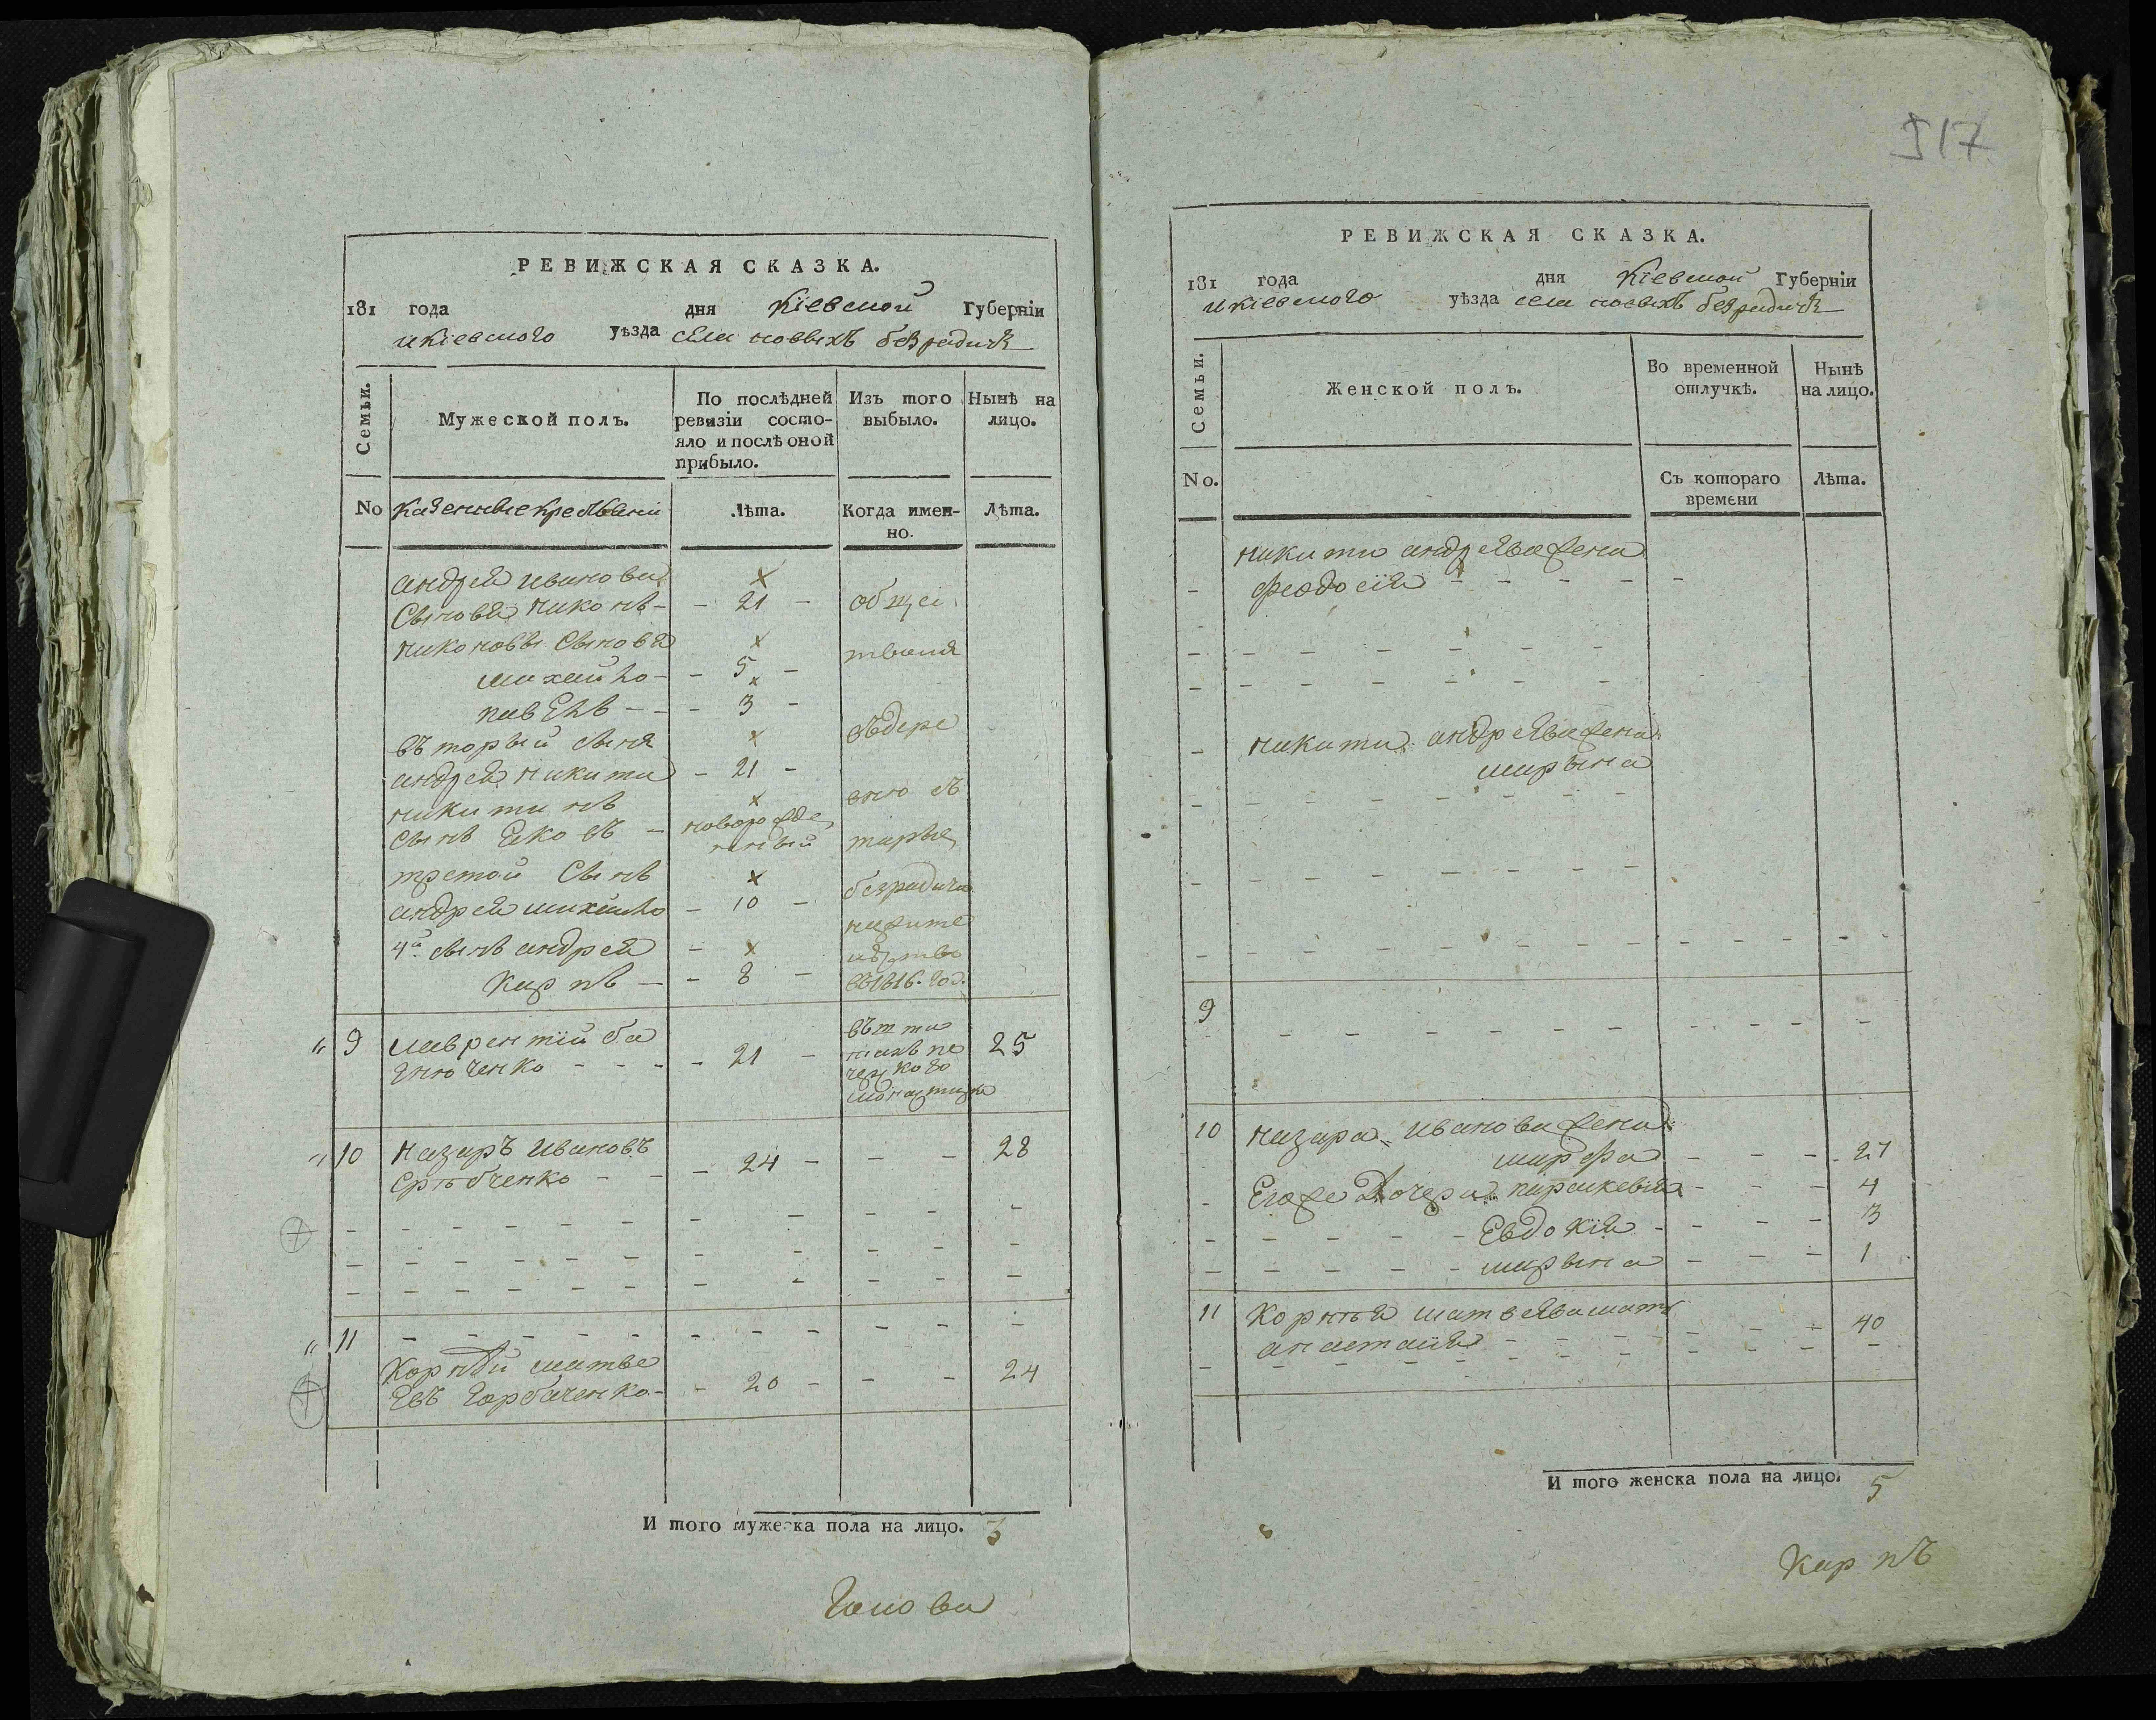 РЕВИЖСКАЯ СКАЗКА.
181 года дня Кіевской Губерніи
и кіевского уѣзда села новыхъ безрадичь
Семьи.
Мужеской полъ.
По послѣдней ревизіи состояло и послѣ оной прибыло.
Изъ того выбыло.
Нынѣ на лицо.
No казенные крестьяни
Лѣта.
Когда именно.
Лѣта.
андрея иванова х
Сыновя никонъ - - 21 - общей
никоновы Сыновя х
михайло - - 5 -
павелъ - - - 3 - х
въторый сынъ х въдере
андрея никита - 21 -
никитинъ х вню съ
сынъ Яковъ - новорожде
нный тарые
третой Сынъ х безрадичи
андрея михайло - 10 -
нажите
4й сынъ андрея - х
Карпъ - - 8 - въ 1816. год.
" 9 лаврентій ба
- 21 - 25
монастиря
" 10 назаръ ивановъ - 24 - - - 28
- - - - - - - - - - -
- - - - - - - - - - -
- - - - - - - - - - -
" 11 - - - - - - - - - - -
Корнѣй матве
евъ Горбаченко - - 20 - - - 24
И того мужеска пола на лицо. 3
РЕВИЖСКАЯ СКАЗКА.
181 года дня Кіевской Губерніи
и кіевского уѣзда села новыхъ безрадичь
Семьи.
Женской полъ.
Во временной отлучкѣ.
Нынѣ на лицо.
No.
Съ котораго времени
Лѣта.
517
никити андреява жена
- феодосія - - - - -
- - - - - - -
- - - - - - -
- никити андреява жена
марына
- - - - - - -
- - - - - - -
- - - - - - - - - - -
9
- - - - - - - - - - -
10 назара иванова жена
марфа - - - 27
- Егоже Дочери параскевія - - - 4
- - - - - Евдокія - - - - 3
- - - - - марына - - - 1
11 Корнѣя матвеява мать
анастасія - - - 40
- - - - - - - - -
И того женска пола на лицо. 5
Карпъ